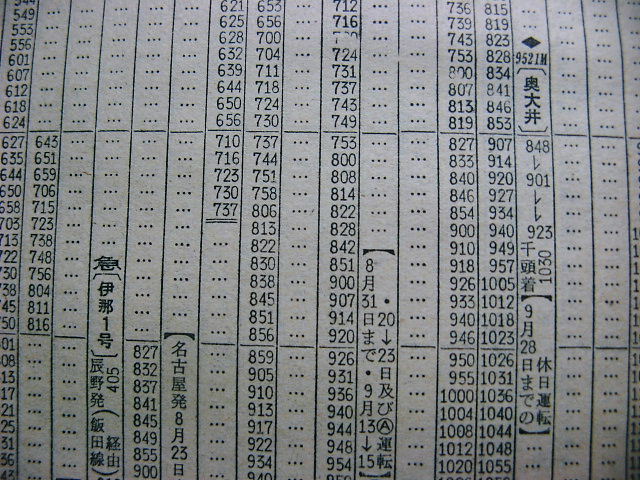 549 621 653 712 736 815
553 625 656 716 739 819
556 628 700 743 823
601 632 704 724 753 828 9521M
607 639 711 731 800 834
612 644 718 737 807 841
618 650 724 743 813 846
624 656 730 749 819 853
627 643 710 737 753 827 907 848
635 651 716 744 800 833 914 ↓
644 659 723 751 808 840 920 901
650 706 730 758 814 846 927 ↓
658 715 737 806 822 854 934 ↓
703 723 813 828 900 940 923
713 738 822 842 910 949
722 748 830 851 918 957
730 756 838 900 926 1005
738 804 845 907 933 1012
745 811 851 914 940 1018
750 816 856 920 946 1023
827 859 926 950 1026
832 905 931 955 1031
837 910 936 1000 1036
841 913 940 1004 1040
845 917 944 1008 1044
849 922 948 1012 1048
855 934 954 1020 1055
900
◆
〔奥大井〕
千頭着1030
【9月28日までの
休日運転】
【8月31日まで・9月13→15
・20→23日及びⒶ運転】
【名古屋発8月23日
急〔伊那1号〕
辰野発405
(飯田線経由)